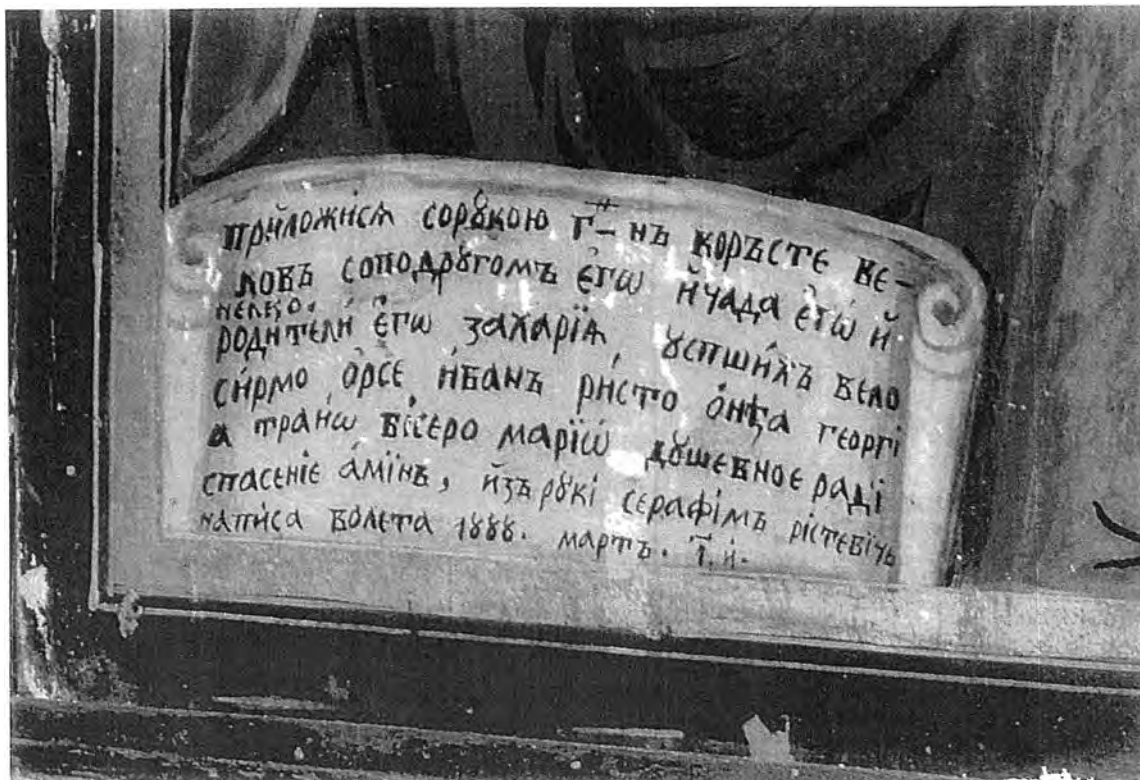 прйложи́сѧ сорꙋ́кою г҃-нъ коръсте ве-
ловъ соподрꙋгомъ є҆гѡ и҆чада є҆гѡ и҆
нелко.
родители́ є҆гѡ захарїѧ, ꙋспши́хъ вело
си́рмо о҆рсе, и҆ванъ ри́сто о҆нѣа георгі
а тра́нѡ ви́серо марїѡ̀ дꙋшевноє раді
спасеніе а҆мїнъ, и҆зъ рꙋкі серафімъ рістевічь
написа волета 1888. мартъ. і҃. и҆.